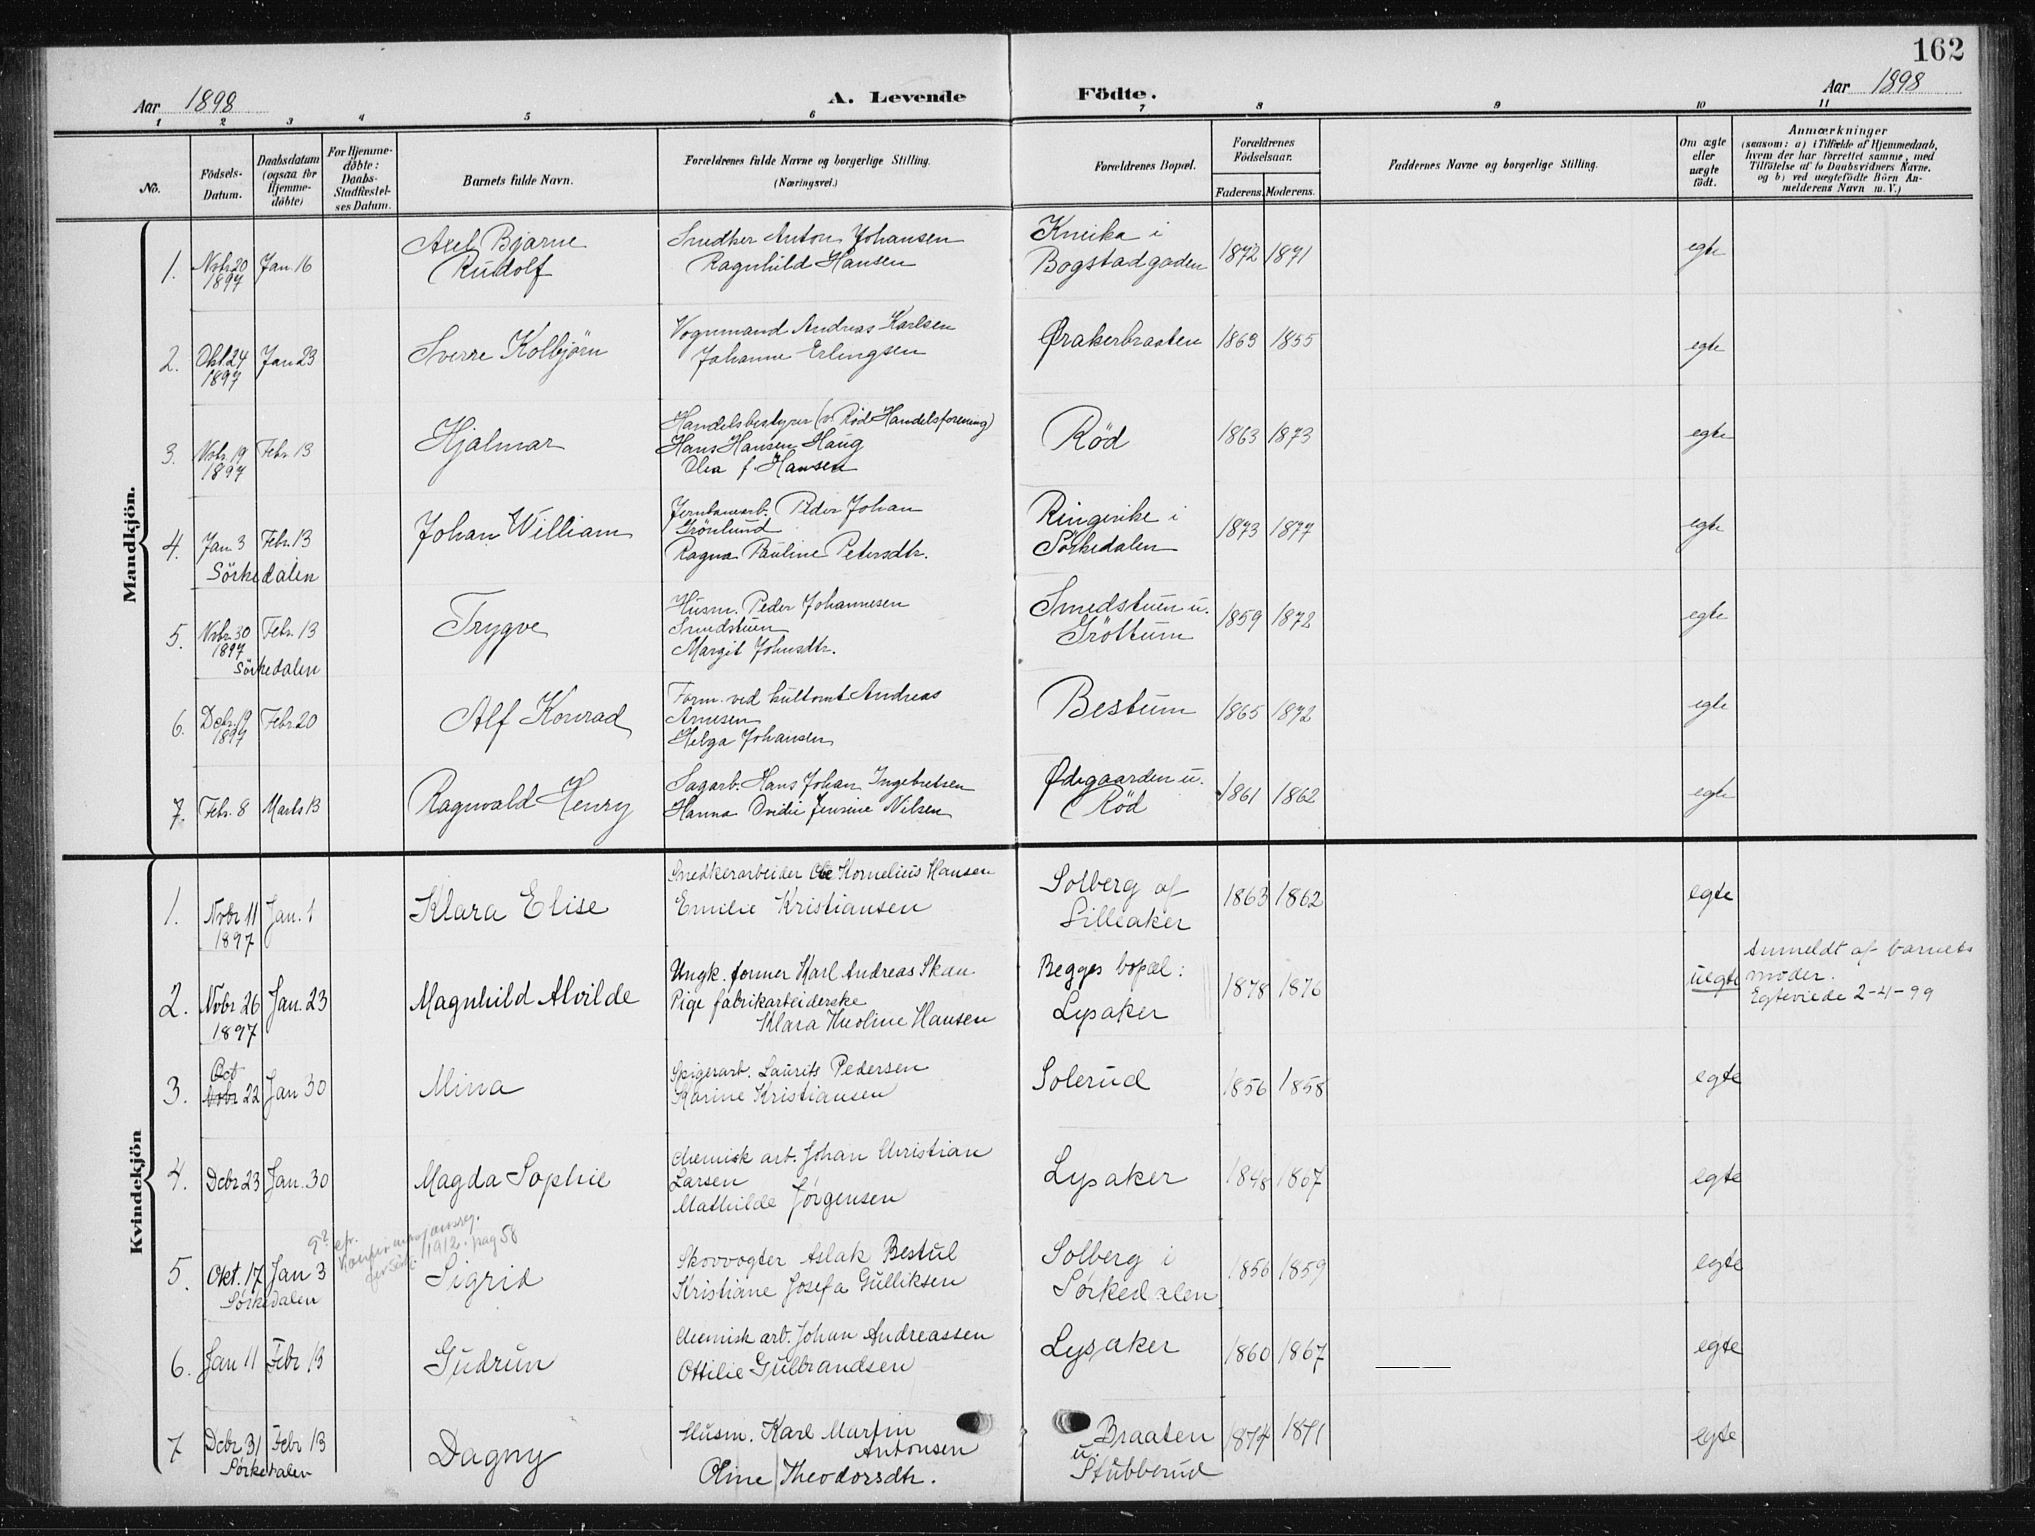 162
Aar 1898
A. Levende Födte.
Aar 1898
1 2 3 4 5 6 7 8 9 10 11
No.
Födsels-Datum.
Daabsdatum (ogsaa for Hjemme-döbte)
For Hjemme-döbte: Daabs-Stadfæstel-ses Datum.
Barnets fulde Navn.
Forældrenes fulde Navne og borgerlige Stilling.
(Næringsvei.)
Forældrenes Bopæl.
Forældrenes Födselsaar.
Faderens. Moderens.
Faddernes Navne og borgerlige Stilling.
Om ægte eller uægte födt.
Anmærkninger
(saasom: a) i Tilfælde af Hjemmedaab, hvem der har forrettet samme, med Tilföielse af to Daabsvidners Navne. og b) ved uægtefödte Börn An-melderens Navn m. V.)
Mandkjön.
1. Nobr 20 1897 Jan. 16 Axel Bjarne Rudolf
Snedker Anton Johansen
Ragnhild Hansen
Kneika i Bogstadgaden 1872 1871 egte
2. Okt 24 1897 Jan 23 Sverre Kolbjørn
Vognmand Andreas Karlsen
Johanne Erlingsen
Ørakerbraaten 1863 1855 egte
3. Nobr. 19 1897 Febr. 13 Hjalmar
Handelsbestyrer (v. Rød Handelsforening)
Hans Hansen Haug
Olea f. Hansen
Rød 1863 1873 egte
4. Jan. 3 Febr. 13 Johan William
Sörkedalen
Jernbanearb. Peder Johan
Grönlund
Ragna Pauline Petersdtr.
Ringerike i Sörkedalen 1873 1877 egte
5. Nobr. 30 1897 Febr. 13 Trygve
Sörkedalen
Husm. Peder Johannesen
Smedstuen
Margit Johnsdtr.
Smedstuen u. Gröttum 1859 1872 egte
6. Debr. 19 1897 Febr. 20 Alf Konrad
Form. ved kultomt Andreas
Arnesen
Helga Johansen
Bestum 1865 1872 egte
7. Febr. 8 Marts 13 Ragnvald Henry
Sagarb. Hans Johan Ingebretsen
Hanna Ovidie Jensine Nilsen
Ødegaarden u. Rød 1861 1862 egte
Kvindekjön
1. Nobr 11 1897 Jan. 1 Klara Elise
Snedkerarbeider Ole Kornelius Hansen
Emilie Kristiansen
Solberg af Lilleaker 1863 1862 egte
2. Nobr 26 1897 Jan. 23 Magnhild Alvilde
Ungk. former Karl Andreas Skau
Pige fabrikarbeiderske
Klara Theoline Hansen
Begges bopæl: Lysaker 1878 1876 uegte
Anmeldt af barnets
moder.
Egteviede 2-4-99
3. Oct Nobr 22 Jan 30 Mina
Spigerarb. Laurits Pedersen
Karine Kristiansen
Solerud 1856 1858 egte
4. Debr 23 Jan. 30 Magda Sophie
chemisk arb. Johan Christian
Larsen
Mathilde Jørgensen
Lysaker 1848 1867 egte
5. Okt. 17 Jan 3 Sigrid
Sørkedalen
1912. pag 58
Skovvogter Aslak Bestul
Kristiane Josefa Gulliksen
Solberg i Sørkedalen 1856 1859 egte
6. Jan 11 Febr 13 Gudrun
chemisk arb. Johan Andreassen
Ottilie Gulbrandsen
Lysaker 1860 1867 egte
7 Debr 31 Febr 13 Dagny
Sørkedalen
Husm. Karl Martin
Antonsen
Oline Theodorsdtr.
Braaten u. Stubberud 1874 1871 egte